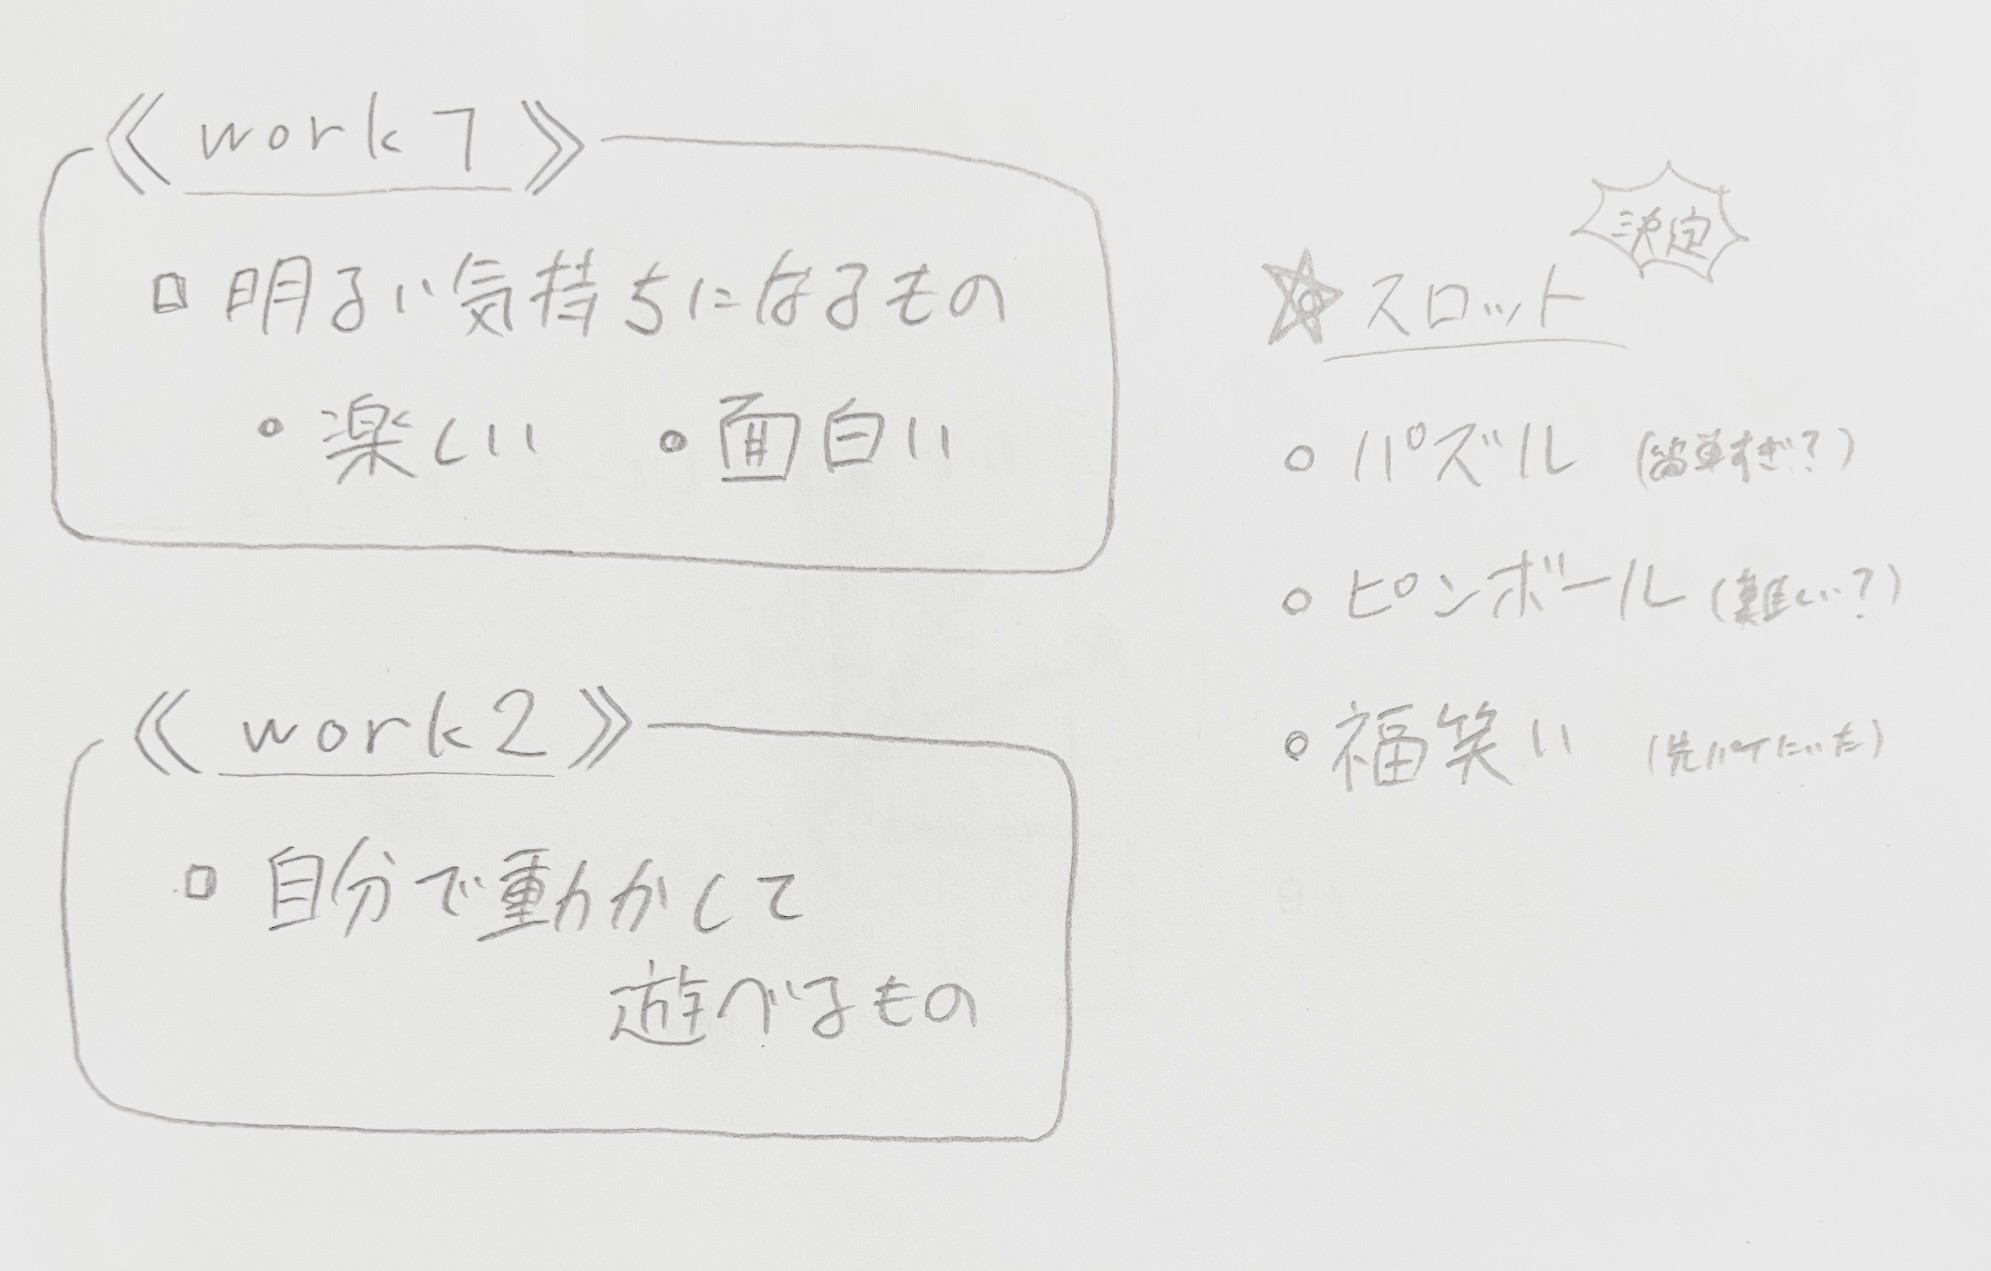 《work1》
□ 明るい気持ちになるもの
• 楽しい • 面白い
《work2》
□ 自分で動かして
遊べるもの
決定
☆スロット
○ パズル (簡単すぎ?)
○ ピンボール (難しい?)
○ 福笑い (先パイにいた)